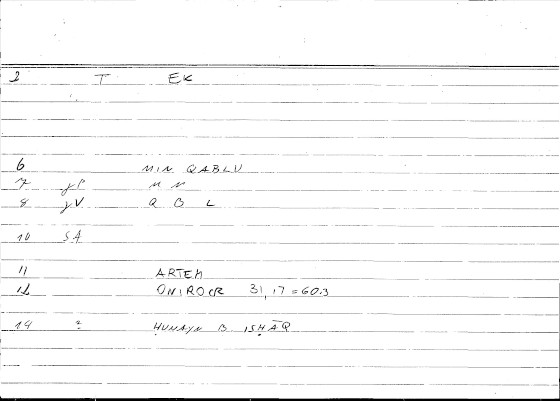 2 T EK
6 MIN QABLU
7 gP M N
8 gV Q B L
10 SA
11 ARTEM
12 ONIROCR 31,17=60.3
14 ? ḤUNAYN B. ISḤĀQ